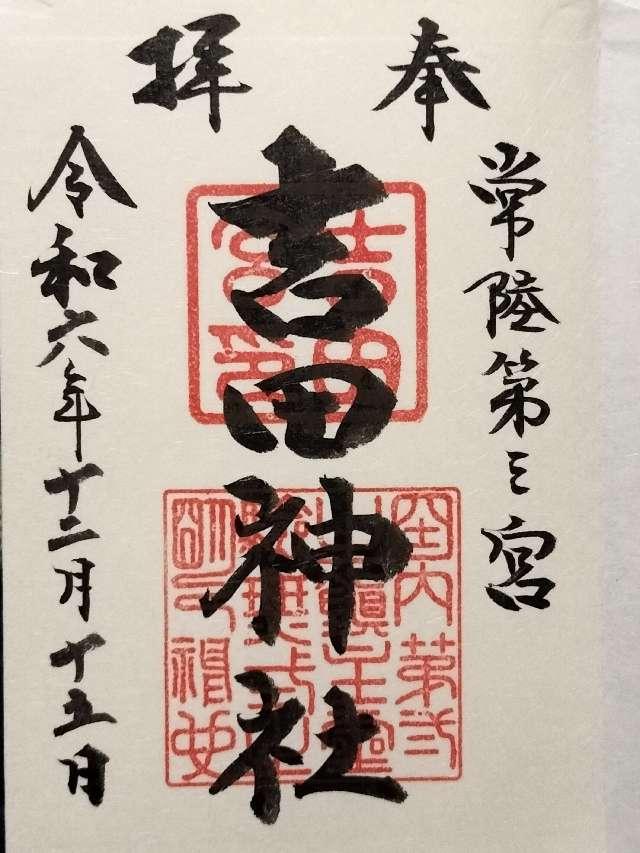 奉拝
常陸第三宮
吉田神社
令和六年十二月十五日